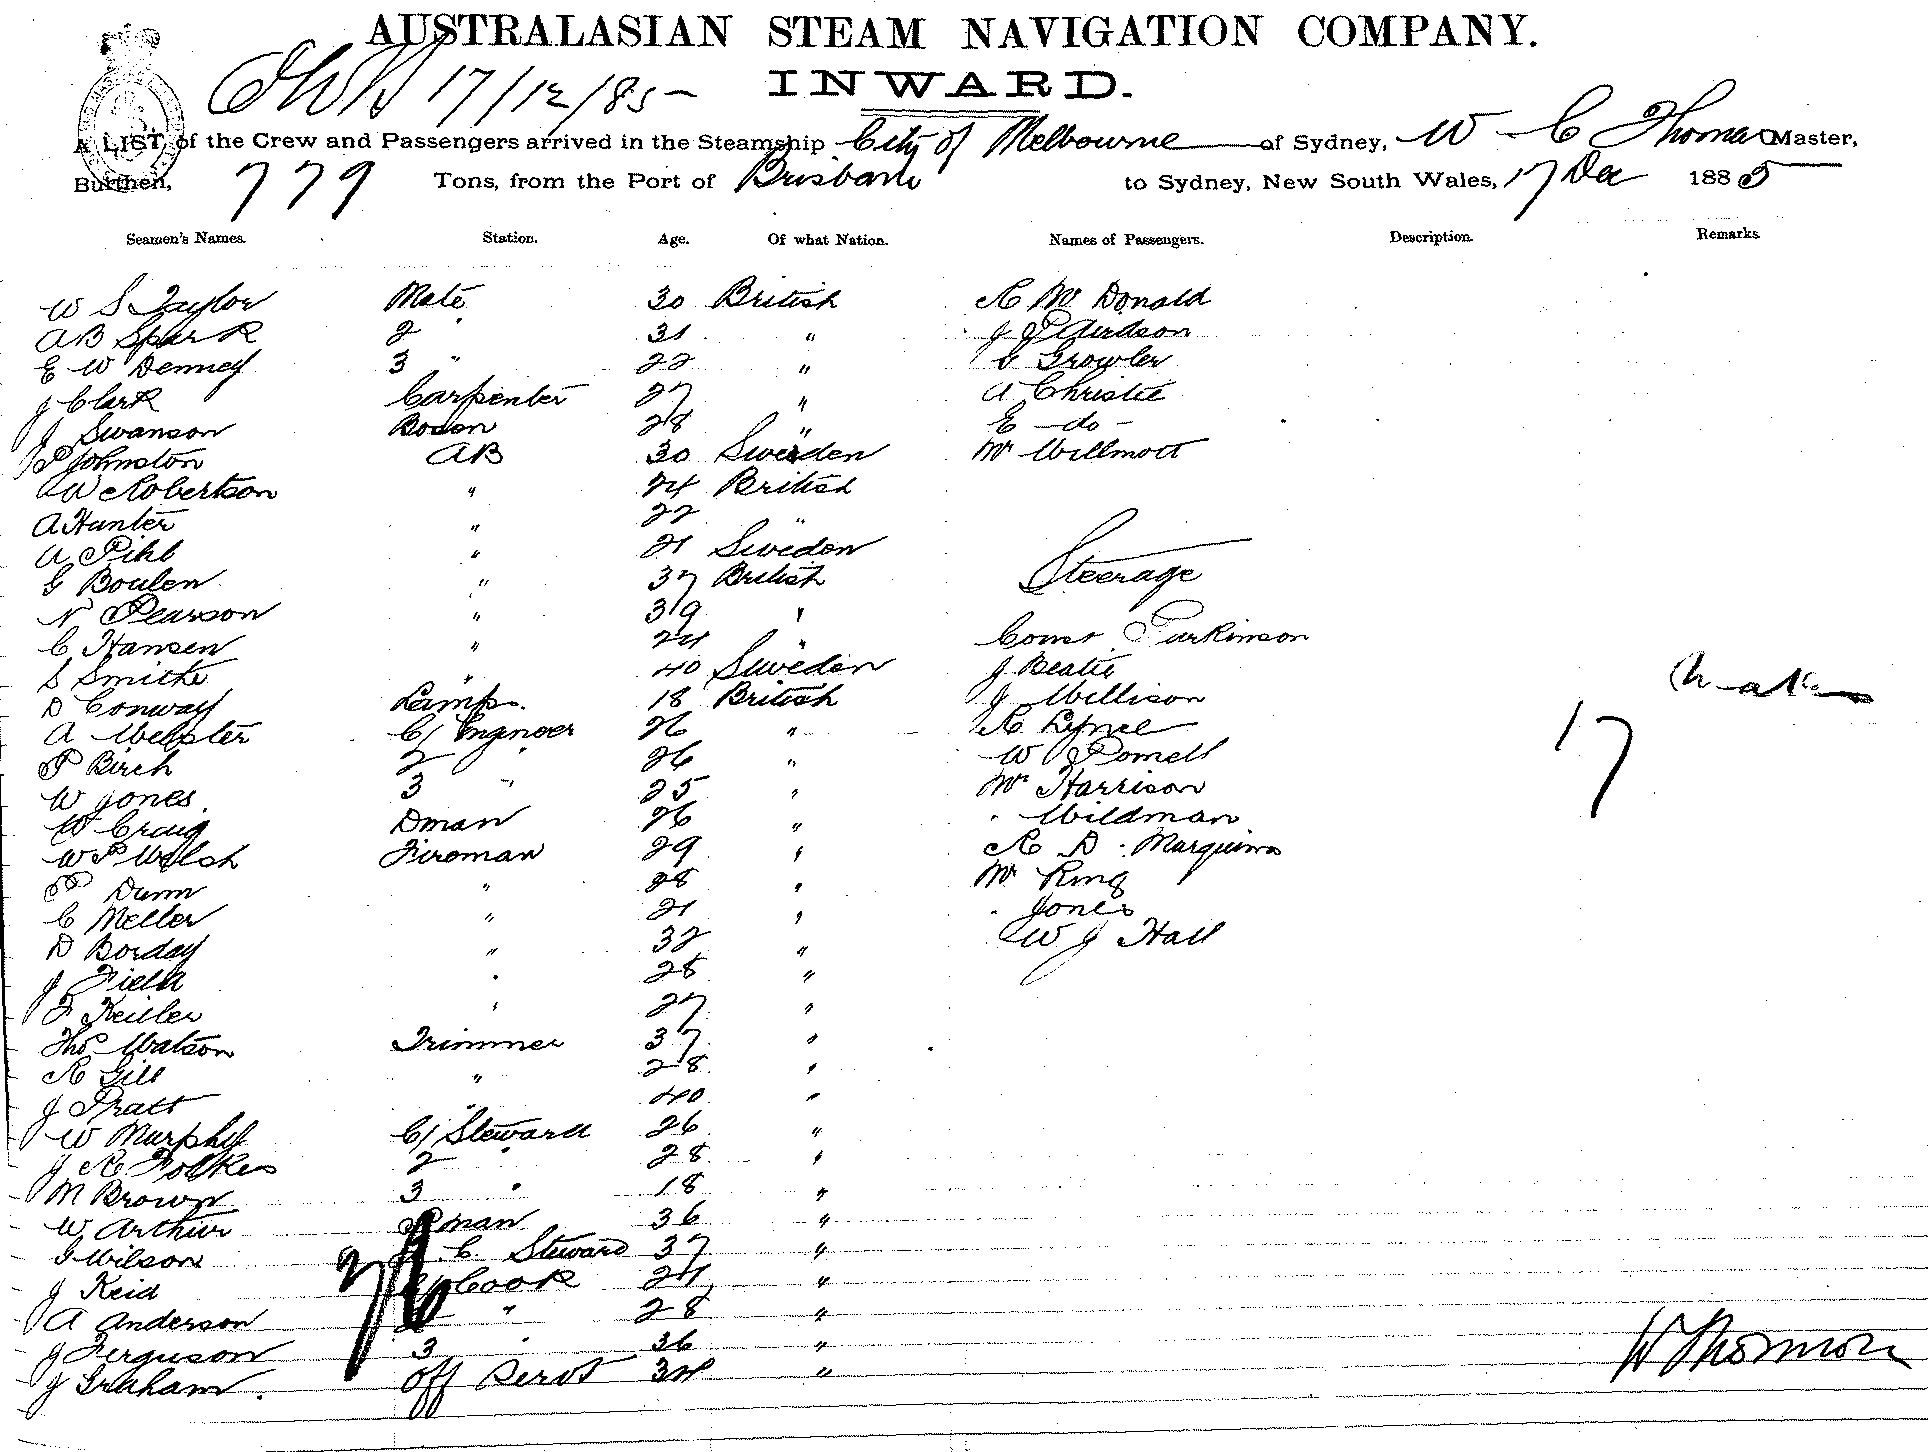 AUSTRALASIAN STEAM NAVIGATION COMPANY.
17/12/85
INWARD.
A LIST of the Crew and Passengers arrived in the Steamship City of Melbourne of Sydney, W C Thomas Master,
Burthen, 779 Tons, from the Port of Brisbane to Sydney, New South Wales, 17 Dec 1885
Seamen's Names. Station. Age. Of what Nation. Names of Passengers. Description. Remarks.
W S Taylor Mate 30 British R Mc Donald
A B Spark 2 " 31 " J P
E W Denney 3 " 22 " G Growler
J Clark Carpenter 27 " A Christie
J Swanson Bosen 28 " E - do -
P Johnston AB 30 Sweden Mr Willmott
W Robertson " 24 British
A Hunter " 22 "
A Pihl " 21 Sweden
G Boulen " 37 British Steerage
N Pearson " 39 "
C Hansen " 24 " Const Parkinson
S Smith " 40 Sweden J Beatie
D Conway Lamps. 18 British J Willison
A Webster C/ Engineer 26 " R Lynce
P Birch 2 " 26 " W Pomell
W Jones 3 " 25 " Mr Harrison
17
W Craig Dman 26 " " Wildman
W P Welsh Fireman 29 " R D
P Dunn " 28 " Mr King
C Meller " 21 " " Jones
D Borday " 32 " W J Hall
J Field " 28 "
F Keiller " 27 "
Thos Watson Trimmer 37 "
R Gill " 28 "
J Pratt " 40 "
W Murphy C/ Steward 26 "
J R Folkes 2 " 28 "
M Brown 3 " 18 "
W Arthur Pman 36 "
G Wilson C. Steward 37 "
J Reid Cook 24 "
A Anderson " 28 "
J Ferguson 3 " 36 "
J Graham. Off Servt 34 "